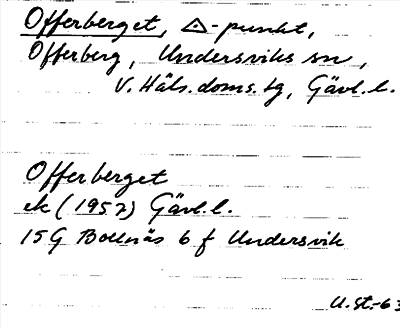 Offerberget, △-punkt,
Offerberg, Undersviks sn,
V. Häls. doms. tg, Gävl. l.
Offerberget
ek (1957) Gävl. l.
15G Bollnäs 6 f Undersvik
U. St.-63